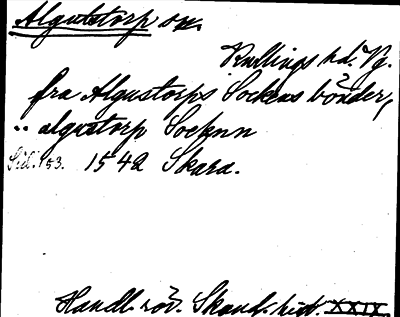 Algutstorp sn.
Kullings hd. Vg.
fra Algustorps Sockens bönder,
.. algustorp Socknn
Sid. 153. 1542 Skara.
Handl. rör. Skand. hist. XXIX.